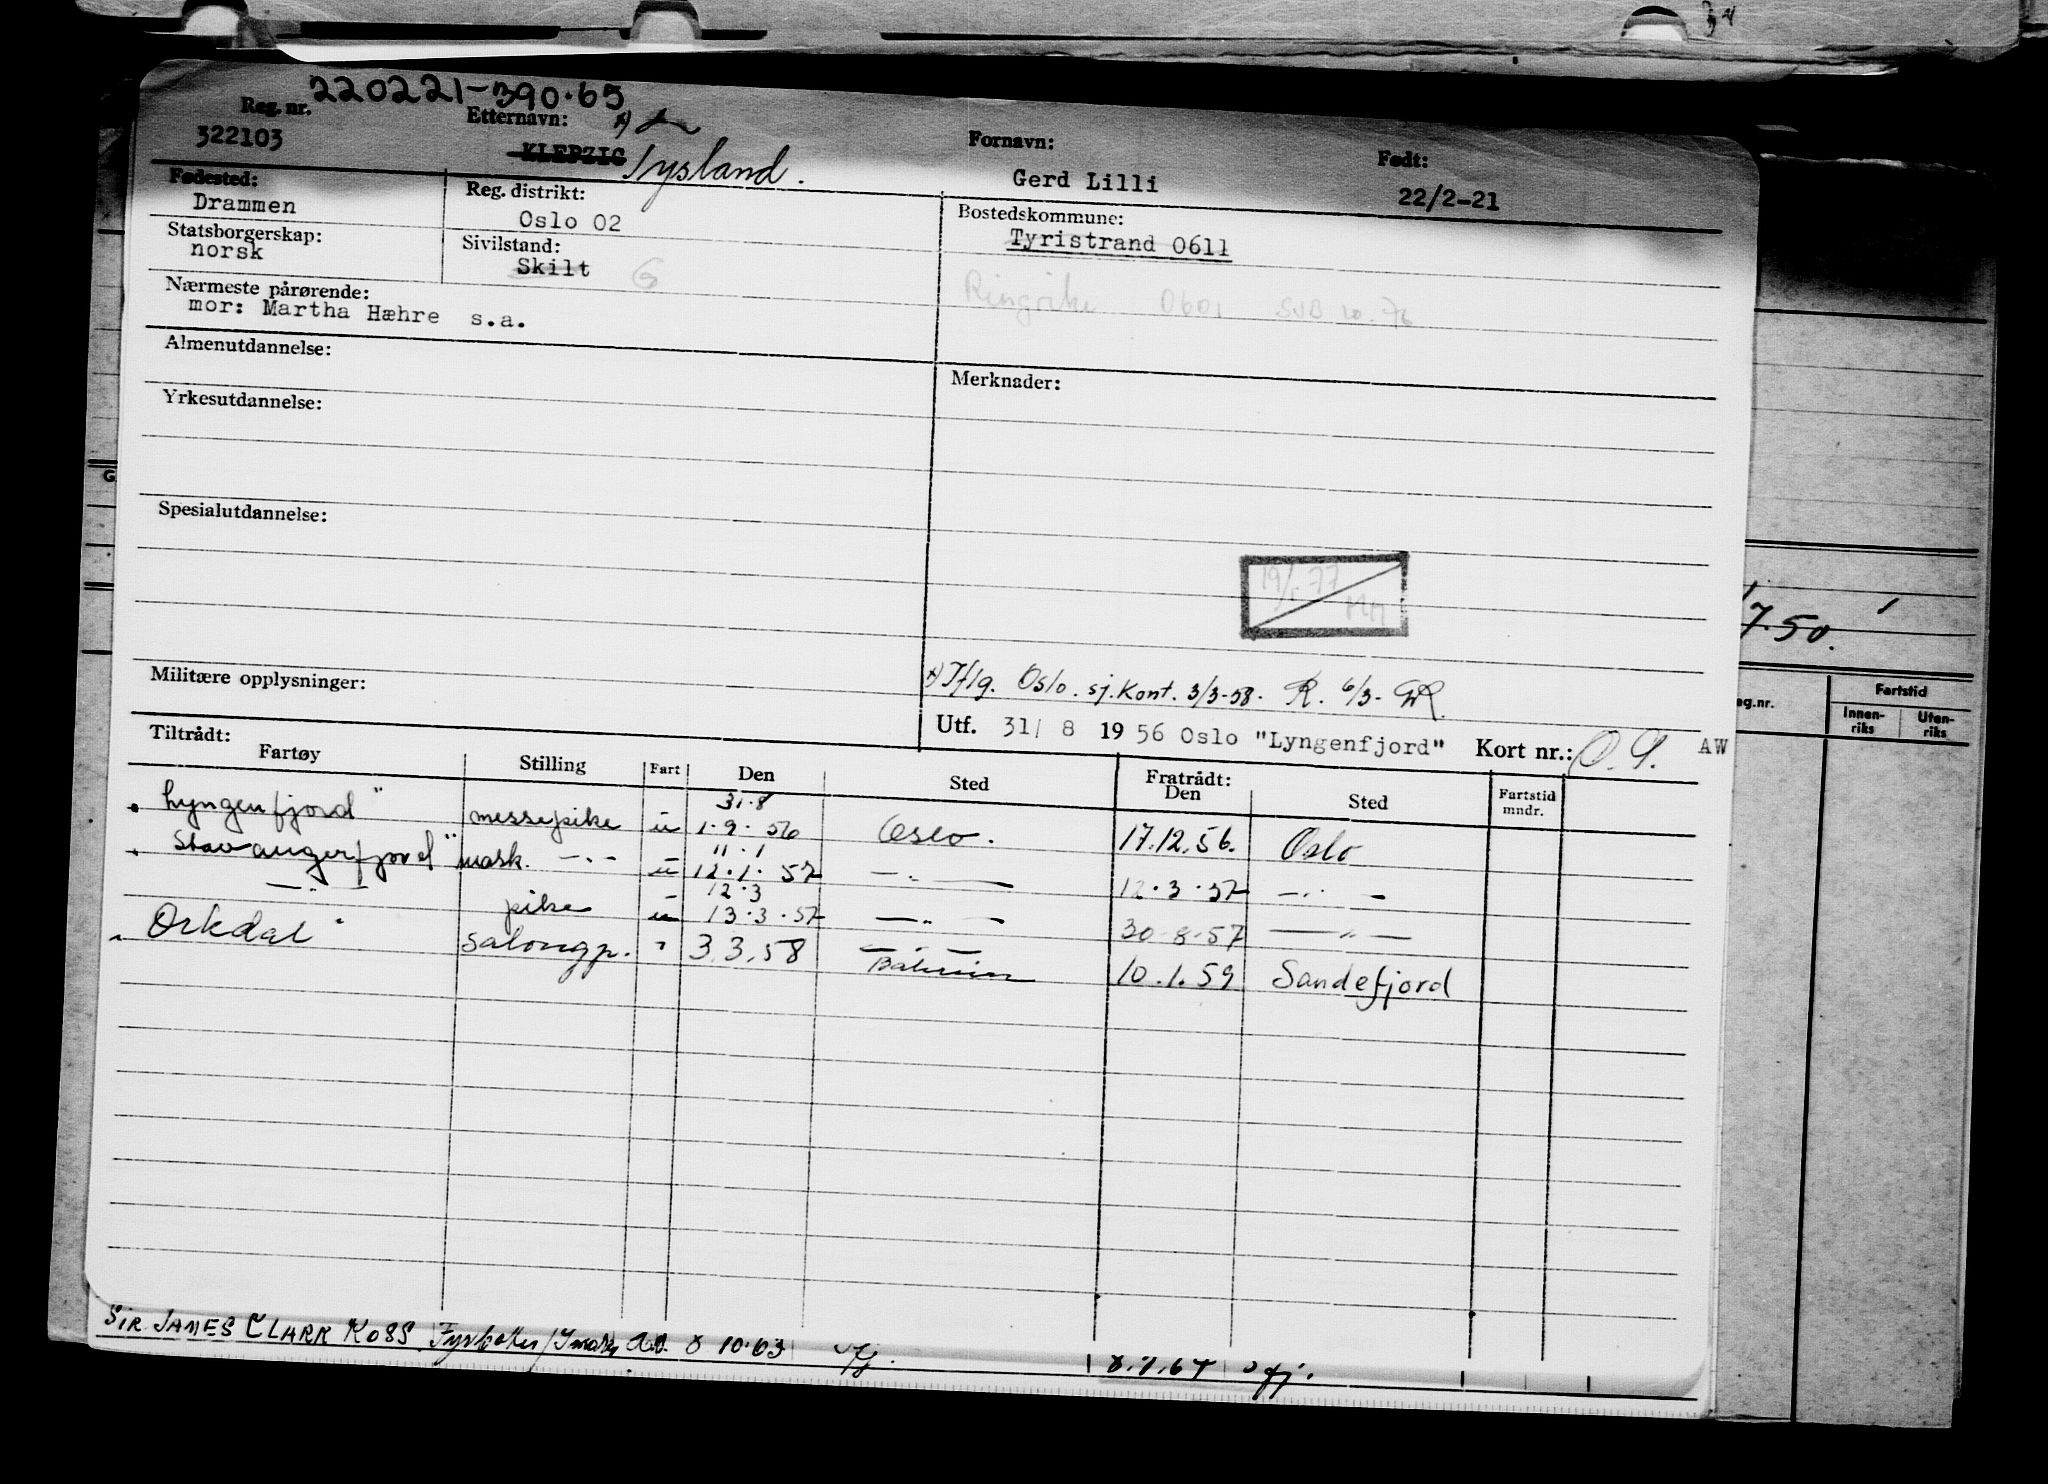 34
220221-390.65
Reg. nr. Etternavn: x) Fornavn: Født:
322103 KLEPZIG Tysland. Gerd Lilli 22/2-21
Fødested: Reg. distrikt: Bostedskommune:
Drammen Oslo 02 Tyristrand 0611
Statsborgerskap: Sivilstand:
norsk Skilt G
Ringrike 0601 SJB 10.76
Nærmeste pårørende:
mor: Martha Hæhre s.a.
Almenutdannelse: Merknader:
Yrkesutdannelse:
Spesialutdannelse:
19/1.77
Militære opplysninger: x) Iflg. Oslo. sj.kont. 3/3-58. R. 6/3-
Utf. 31/ 8 1956 Oslo "Lyngenfjord" Kort nr.: AW
Tiltrådt: Fratrådt:
Fartøy Stilling Fart Den Sted Den Sted Fartstid mndr.
31.8
"Lyngenfjord" messepike u 1.9.56 Oslo. 17.12.56. Oslo
11.1
"Stavangerfjord" mask. -"- u 12.1.57 -"- 12.3.57 -"-
12.3
-"- pike u 13.3.57 -"- 30.8.57 -"-
"Orkdal" salongp. " 3.3.58 -"- 10.1.59 Sandefjord
SIR JAMES CLARK ROSS 8 10.63 8.7.64
G
7.50.
g.nr. Fartstid
Innen-riks Uten-riks